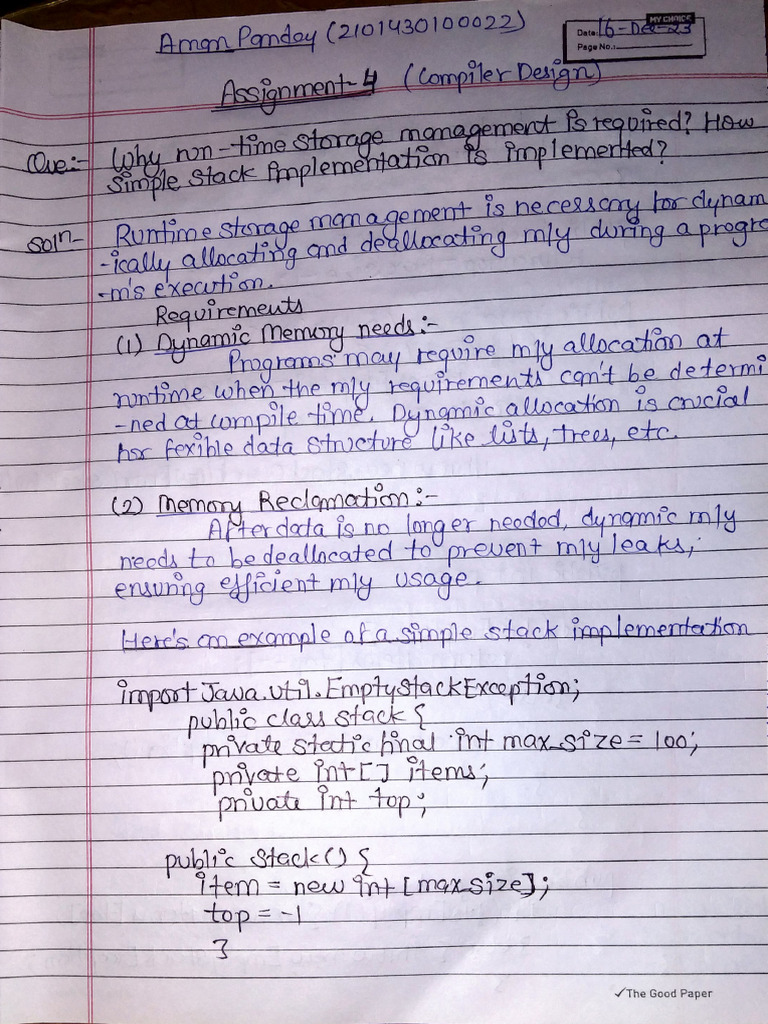 Aman Panday (2101430100022)
MY CHOICE
Date: 16-Dec-23
Page No.:
Assignment-4 (Compiler Design)
Que:- Why run-time storage management is required? How
simple stack implementation is implemented?
Soln- Runtime storage management is necessary for dynam
-ically allocating and deallocating m/y during a progra
-m's execution.
Requirements
(1) Dynamic Memory needs:-
Programs may require m/y allocation at
runtime when the m/y requirements can't be determi
-ned at compile time. Dynamic allocation is crucial
for fexible data structure like lists, trees, etc.
(2) Memory Reclamation:-
After data is no longer needed, dynamic m/y
needs to be deallocated to prevent m/y leaks,
ensuring efficient m/y usage.
Here's an example of a simple stack implementation
import Java.util.EmptyStackException;
public class stack {
private static final int max_size = 100;
private int[] items;
private int top;
public stack() {
item = new int [max_size];
top = -1
}
✓The Good Paper